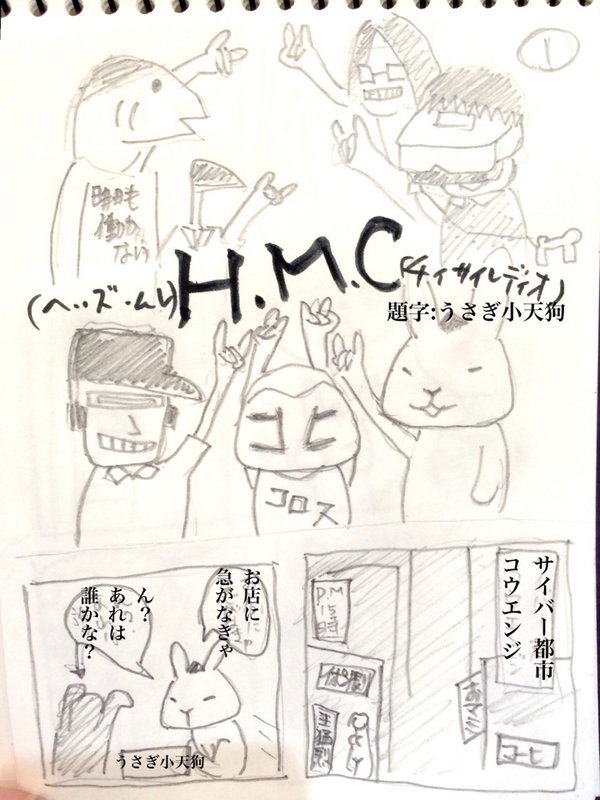 1
明日も
働か
ない
H.M.C
(チイサイレディオ)
題字:うさぎ小天狗
コヒ
コロス
サイバー都市
コウエンジ
P.M
15時
コーヒ
お店に
急がなきゃ
ん?
あれは
誰かな?
うさぎ小天狗